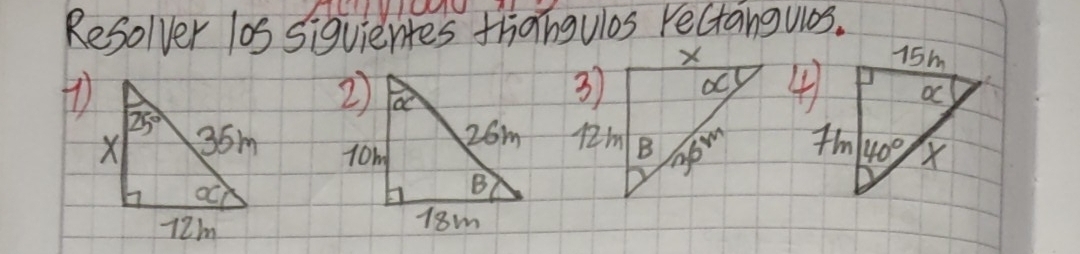 Resolver los siguientes triángulos rectángulos.
1) 25° X 35m α 12m
2) α 10m 26m B 18m
3) x α 12m B 26m
4) 15m α 7m 40° x